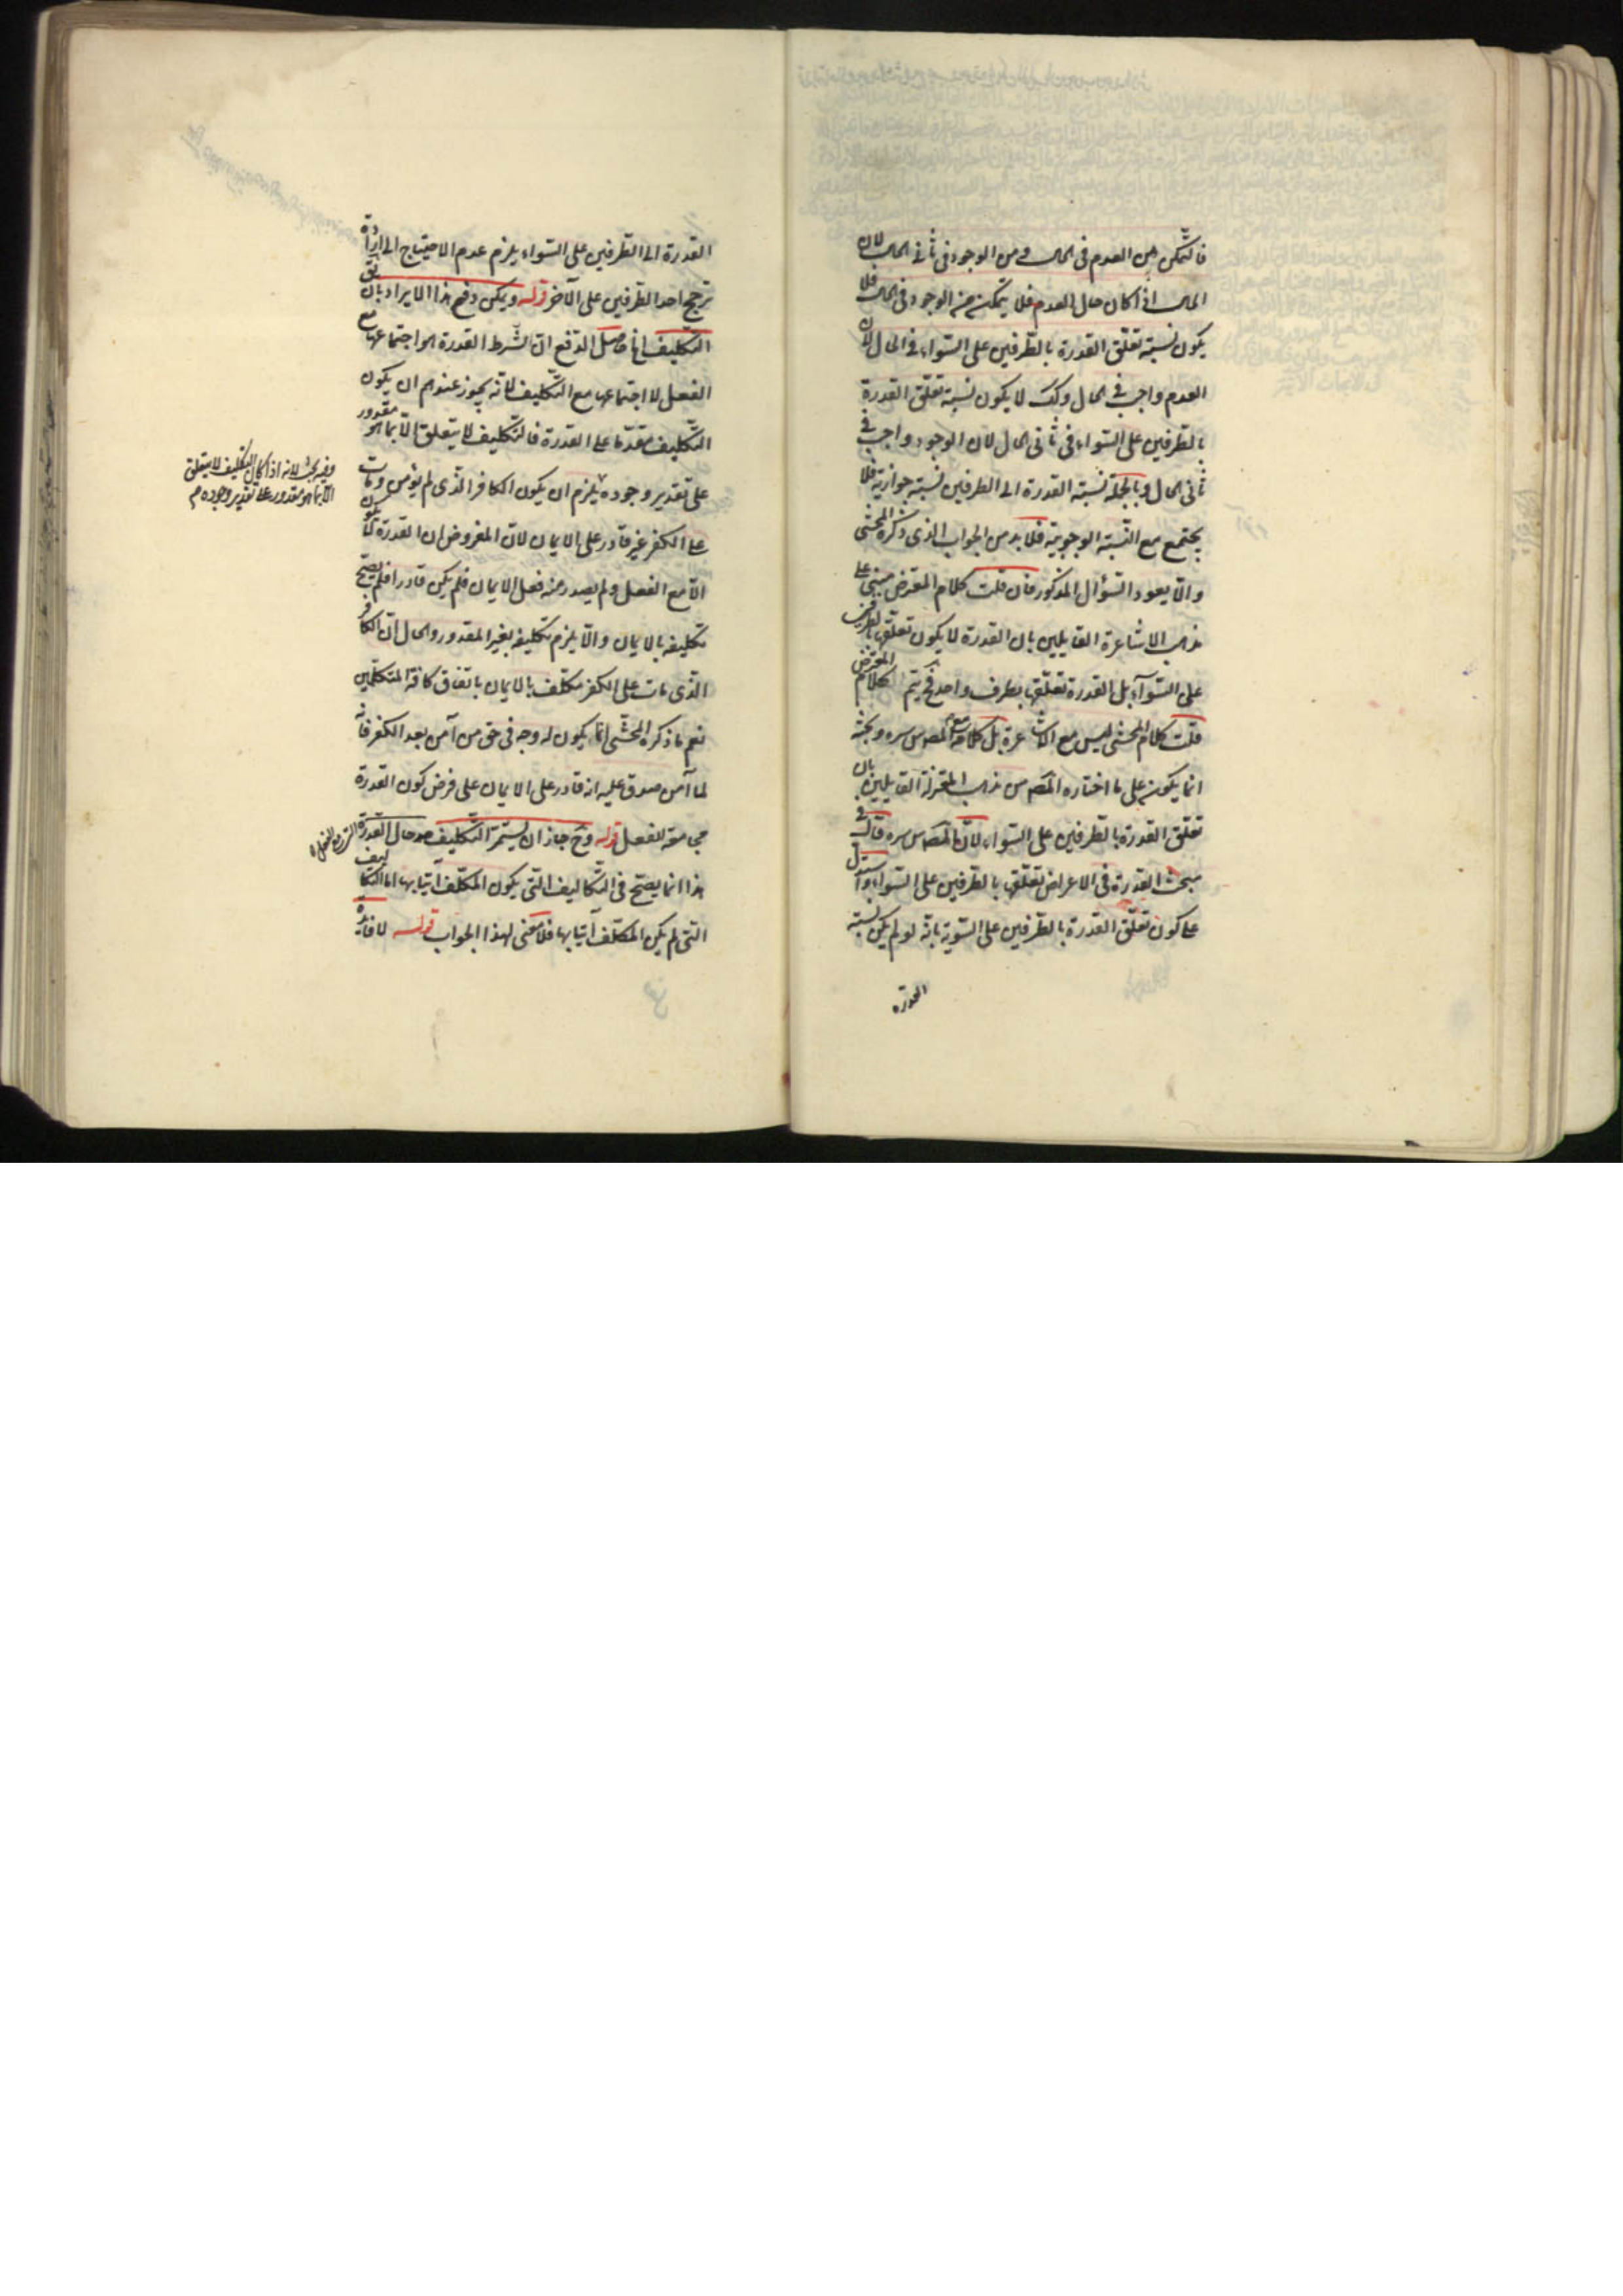 فالتمكن من العدم في الحال ومن الوجود في ثاني الحال لان
الحال اذا كان حال العدم فلا يتمكن منه الوجود في الحال فلا
يكون نسبة تعلّق القدرة بالطّرفين على السّواء في الحال لان
العدم واجب في الحال وكك لا يكون نسبة تعلّق القدرة
بالطّرفين على السّواء في ثاني الحال لان الوجود واجب في
ثاني الحال وبالجملة نسبة القدرة الى الطرفين نسبة جوازية فلا
يجتمع مع النّسبة الوجوبيّة فلا بد من الجواب الذي ذكره المحشّي
والّا يعود السّؤال المذكور فان قلت كلام المعترض مبني على
مذهب الاشاعرة القايلين بان القدرة لا يكون تعلّقها بالطرفين
على السّوآء بل القدرة تعلّقها بطرف واحد فح يتم كلام المعترض
قلت كلام المحشّي ليس مع الاشاعرة بل كلامه مع المصوس سره وبحثه
انما يكون على ما اختاره المص من مذهب المعتزلة القايلين بان
تعلّق القدرة بالطّرفين على السّواء لانّ المصوس سره قال في
مبحث القدرة في الاعراض تعلّقها بالطّرفين على السّواء واستدل
على كون تعلّق القدرة بالطّرفين على السّوية بانّه لو لم يكن نسبة
القدرة
القدرة الى الطّرفين على السّواء يلزم عدم الاحتياج الى ارادة
ترجح احد الطّرفين على الآخر قوله ويمكن دفع هذا الايراد بان تعلق
التّكليف اه حاصل الدّفع انّ الشّرط القدرة هو اجتماعها مع
الفعل لا اجتماعها مع التّكليف لانّه يجوز عندهم ان يكون
التّكليف مقدّما على القدرة فالتّكليف لا يتعلّق الّا بما هو مقدور
على تقدير وجوده يلزم ان يكون الكافر الّذي لم يؤمن ومات
على الكفر غير قادر على الايمان لانّ المفروض ان القدرة لا يكون
الّا مع الفعل ولم يصدر منه فعل الايمان فلم يكن قادرا فلم يصح
تكليفه بالايمان والّا يلزم تكليفه بغير المقدور والحال انّ الكافر
الّذي مات على الكفر مكلّف بالايمان باتفاق كافة المتكلّمين
نعم ما ذكره المحشّي انّما يكون له وجه في حق من آمن بعد الكفر فانّه
لما آمن صدق عليه انه قادر على الايمان على فرض كون القدرة
مجامعة للفعل قوله وح جاز ان يستمرّ التّكليف حال القدرة
هذا انما يصحّ في التّكاليف الّتي يكون المكلّف آتيا بها اما التّكاليف
الّتي لم يكن المكلّف آتيا بها فلا معنى لهذا الجواب قوله لا فائدة
وفيه بحث لانه اذا كان التّكليف لا يتعلق
الّا بما هو مقدور على تقدير وجوده م